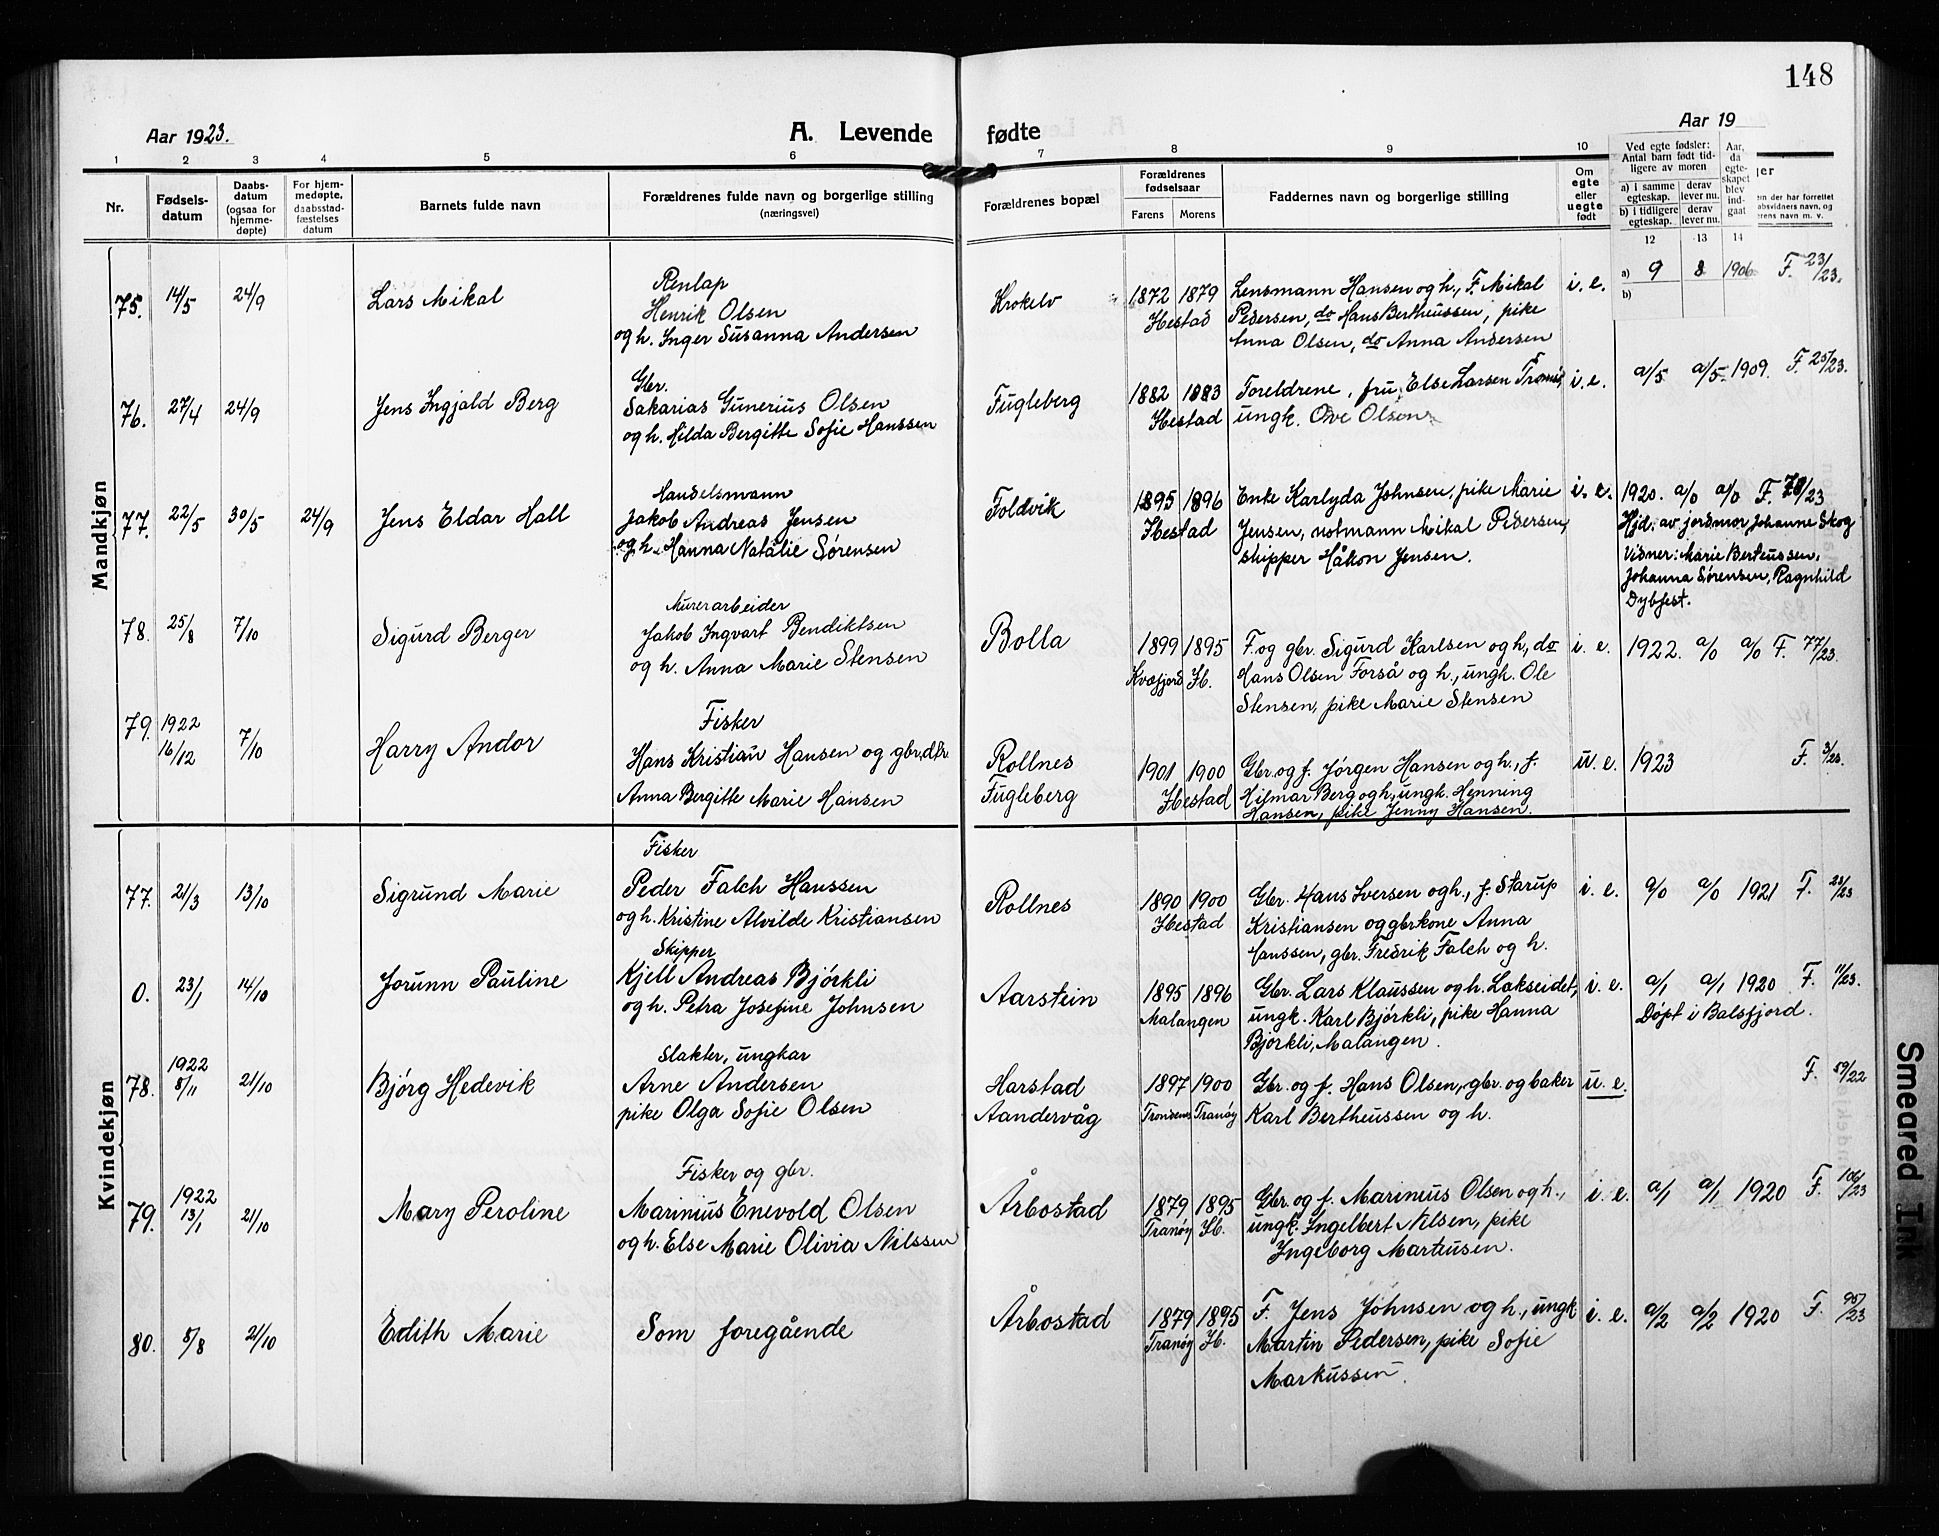 148
Aar 1923.
A. Levende fødte
Aar 19
1 2 3 4 5 6 7 8 9 10
Nr.
Fødsels-
datum
Daabs-
datum
(ogsaa for
hjemme-
døpte)
For hjem-
medøpte,
daabsstad-
fæstelses
datum
Barnets fulde navn
Forældrenes fulde navn og borgerlige stilling
(næringsvei)
Forældrenes bopæl
Forældrenes
fødselsaar
Farens Morens
Faddernes navn og borgerlige stilling
Om
egte
eller
uegte
født
Ved egte fødsler:
Antal barn født tid-
ligere av moren
a) i samme
egteskap.
derav
lever nu.
b) i tidligere
egteskap.
derav
lever nu.
Aar,
da
egte-
skapet
blev
ind-
gaat
ger
m der har forrettet
absvidners navn, og
erens navn m. v.
12 13 14
Mandkjøn
75. 14/5 24/9 Lars Mikal
Renlap
Henrik Olsen
og h. Inger Susanna Andersen
Krokelv
1872 1879
Ibestad
Lensmann Hansen og h., F. Mikal
Pedersen, do Hans Bertheussen, pike
Anna Olsen, do Anna Andersen
i. e.
a) 9 8 1906 F. 23/23.
b)
76. 27/4 24/9 Jens Ingjald Berg
Gbr.
Sakarias Gunerius Olsen
og h. Hilda Bergitte Sofie Hanssen
Fugleberg
1882 1883
Ibestad
Foreldrene, fru Else Larsen Tromsø,
ungk. Ove Olsen
i. e.
a/5 a/5 1909. F. 25/23.
77. 22/5 30/5 24/9 Jens Eldar Hall
Handelsmann
Jakob Andreas Jensen
og h. Hanna Natalie Sørensen
Foldvik
1895 1896
Ibestad
Enke Karlyda Johnsen, pike Marie
Jensen, notmann Mikal Pedersen,
skipper Håkon Jensen.
i. e.
1920. a/0 a/0 F. /23
Hjd. av jordmor Johanne Skog
Visner: Marie Berteussen,
Johanna Sørensen, Ragnhild
Dybfest.
78. 25/8 7/10 Sigurd Berger
Murerarbeider
Jakob Ingvart Bendiktsen
og h. Anna Marie Stensen
Bolla
1899 1895
Kvæfjord Ib.
F. og gbr. Sigurd Karlsen og h, do
Hans Olsen Forså og h., ungk. Ole
Stensen, pike Marie Stensen
i. e.
1922. a/0 a/0 F. 77/23.
79. 1922
16/12 7/10 Harry Andor
Fisker
Hans Kristian Hansen og gbr.dtr.
Anna Bergitte Marie Hansen
Rollnes
Fugleberg
1901 1900
Ibestad
Gbr. og f. Jørgen Hansen og h., f.
Hilmar Berg og h, ungk. Henning
Hansen, pike Jenny Hansen.
u. e.
1923 F. 3/23.
Kvindekjøn
77. 21/3 13/10 Sigrund Marie
Fisker
Peder Falch Hanssen
og h. Kristine Alvilde Kristiansen
Rollnes
1890 1900
Ibestad
Gbr. Hans Iversen og h., f. Starup
Kristiansen og gbrkone Anna
Hanssen, gbr. Fredrik Falch og h.
i. e.
a/0 a/0 1921 F. 23/23
0. 23/1 14/10 Jorunn Pauline
Skipper
Kjell Andreas Bjørkli
og h. Petra Josefine Johnsen
Aarstein
1895 1896
Malangen
Gbr. Lars Klaussen og h. Lakseidet,
ungk. Karl Bjørkli, pike Hanna
Bjørkli, Malangen.
i. e.
a/1 a/1 1920 F. 11/23.
Døpt i Balsfjord.
78. 1922
8/11 21/10 Bjørg Hedevik
Slakter, ungkar
Arne Andersen
pike Olga Sofie Olsen
Harstad
Aandervåg
1897 1900
Trondenes Tranøy
Gbr. og f. Hans Olsen, gbr. og baker
Karl Bertheussen og h.
u. e.
F. 59/22
79. 1922
13/1 21/10 Mary Peroline
Fisker og gbr.
Marinius Enevold Olsen
og h. Else Marie Olivia Nilssen
Årbostad
1879 1895
Tranøy Ib.
Gbr. og f. Marinius Olsen og h.,
ungk. Ingelbert Nilsen, pike
Ingeborg Marteusen.
i. e.
a/1 a/1 1920 F. 106/23
80. 8/8 21/10 Edith Marie
Som foregående
Årbostad
1879 1895
Tranøy Ib.
F. Jens Johnsen og h., ungk
Martin Pedersen, pike Sofie
Markussen.
i. e.
a/2 a/2 1920 F. 95/23
Smeared Ink